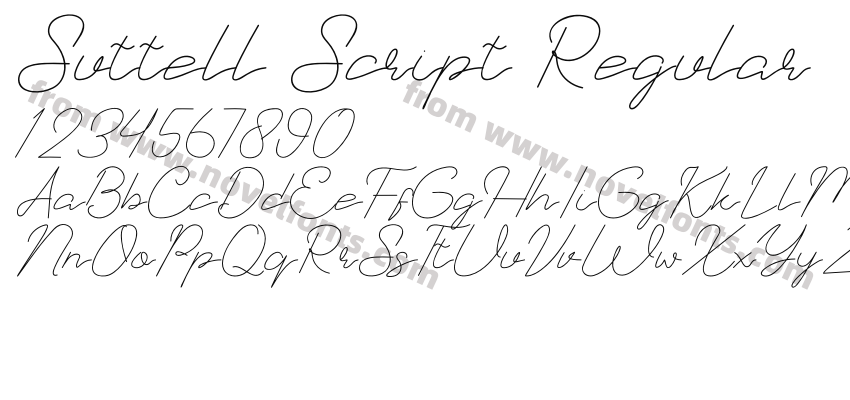 Suttell Script Regular
1234567890
AaBbCcDdEeFfGgHhIiGgKkLlM
NnOoPpQqRrSsTtUuVvWwXxYyZ
from www.novelfonts.com
from www.novelfonts.com